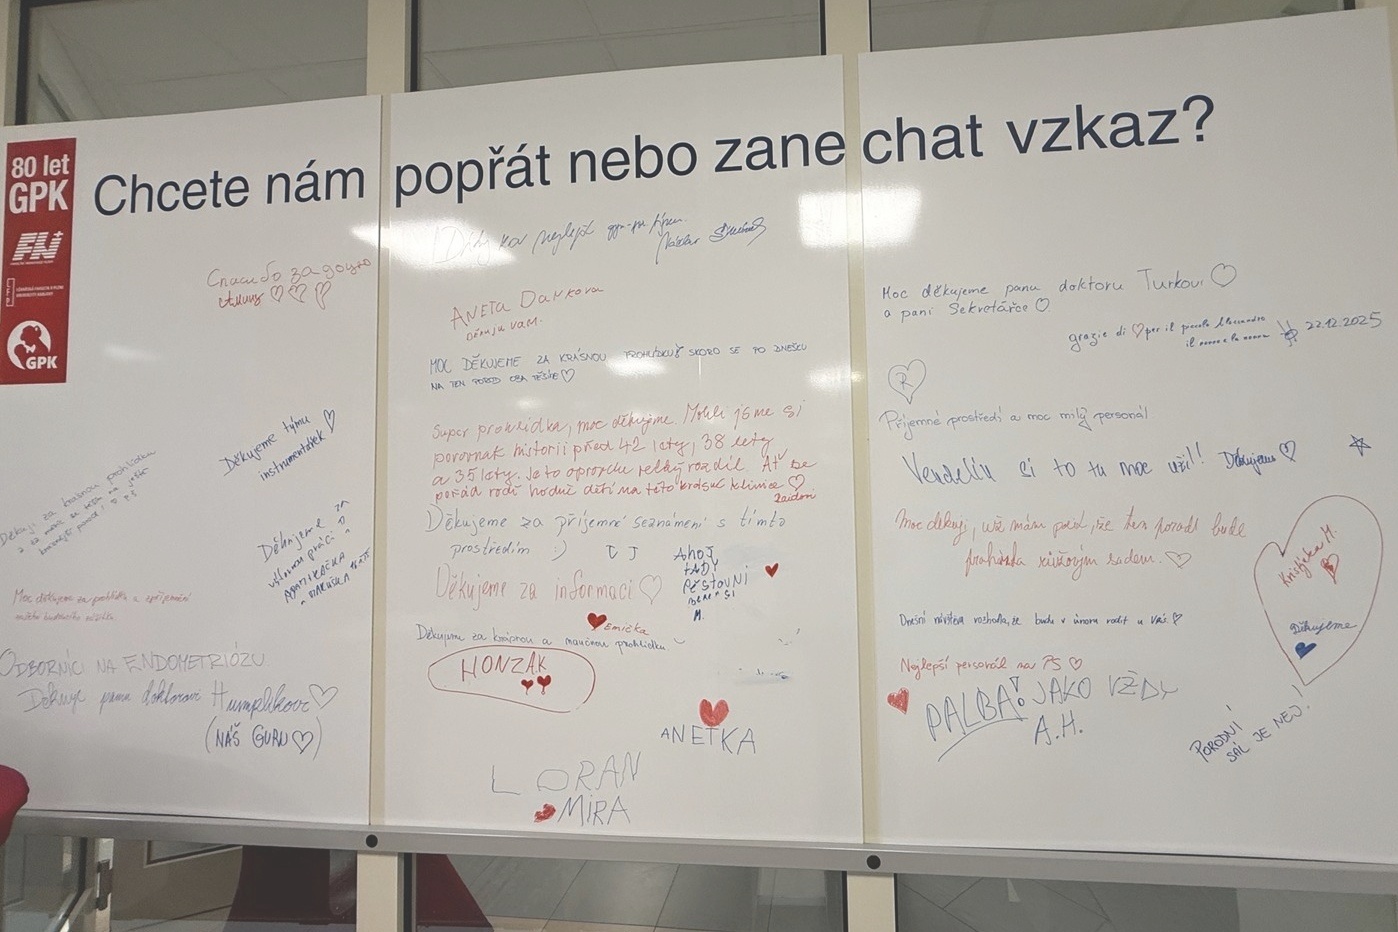 80 let
GPK
FN
GPK
Chcete nám popřát nebo zanechat vzkaz?
Спасибо за
Děkujeme týmu
instrumentářek
Děkuji za krásnou prohlídku
Děkujeme za
Moc děkujeme za prohlídku a zpříjemnění
ODBORNÍC NA ENDOMETRIÓZU
Děkuji panu doktorovi Humplíkovi
(NÁŠ GURU)
Díky
nejlepší
Václav
ANETA
děkuju vám.
MOC DĚKUJEME ZA KRÁSNOU PROHLÍDKU SKORO SE PO DNEŠKU
NA TEN POROD OBA TĚŠÍME
Super prohlídka, moc děkujeme. Mohli jsme si
porovnat historii před 42 lety, 38 lety
a 35 lety. Je to opravdu velký rozdíl. Ať se
pořád rodí hodně dětí na této krásné klinice
Děkujeme za příjemné seznámení s tímto
prostředím :)
Děkujeme za informaci
AHOJ
TADY
PĚSTOVNÍ
M.
Emička
Děkujeme za krásnou a naučnou prohlídku
HONZÁK
ANETKA
LORAN
MÍRA
Moc děkujeme panu doktoru Turkovi
a paní Sekretářce
grazie di per il piccolo Alessandro
22.12.2025
R
Příjemné prostředí a moc milý personál
Vendelín si to tu moc užil! Děkujeme
Moc děkuji, už mám pocit, že ten porod bude
procházka růžovým sadem.
Dnešní návštěva rozhodla, že budu v únoru rodit u Vás
Nejlepší personál na PS
PALBA! JAKO VŽDY
A.H.
Kristýnka M.
Děkujeme
PORODNÍ
SÁL JE NEJ!